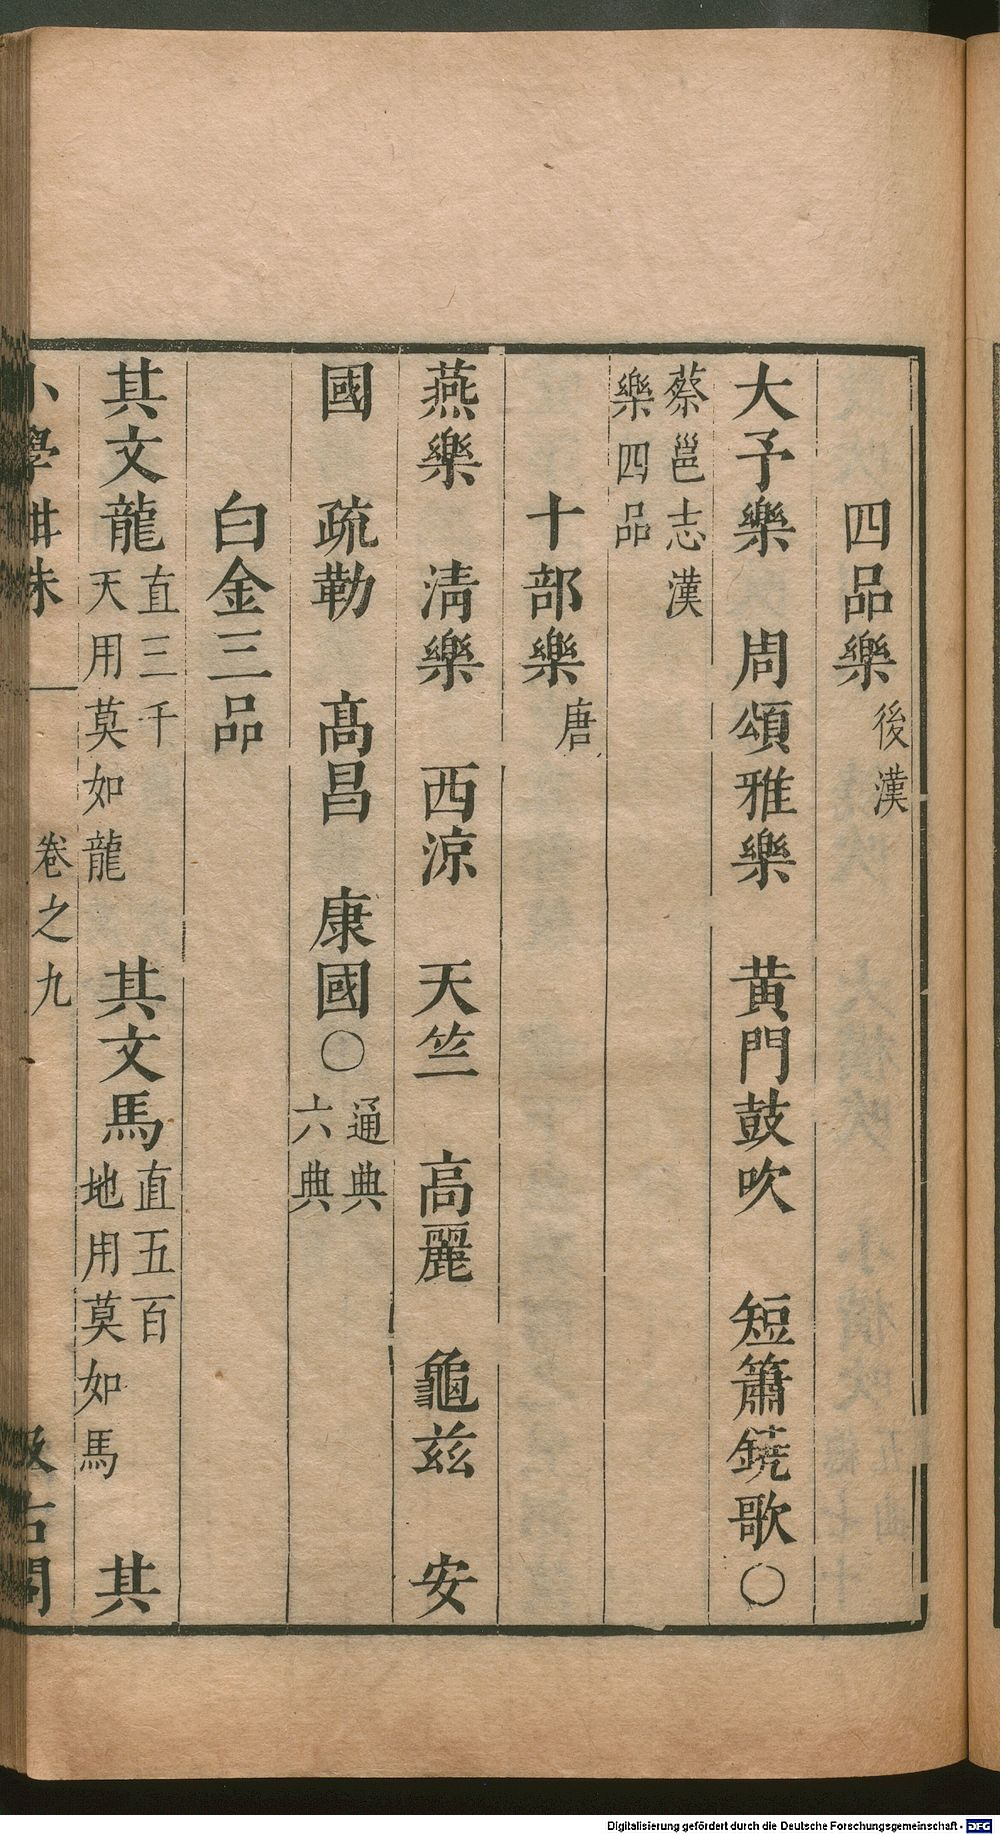 四品樂後漢
大予樂　周頌雅樂　黃門鼓吹　短簫鐃歌○
蔡邕志漢
樂四品
十部樂唐
燕樂　清樂　西涼　天竺　高麗　龜茲　安
國　疏勒　髙昌　康國○通典
六典
白金三品
其文龍直三千
天用莫如龍　其文馬直五百
地用莫如馬　其
小學紺珠　卷之九　汲古閣
Digitalisierung gefördert durch die Deutsche Forschungsgemeinschaft - DFG